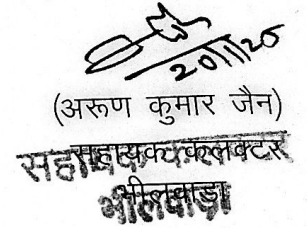 20/11/26
(अरूण कुमार जैन)
सहायक कलक्टर
भीलवाड़ा